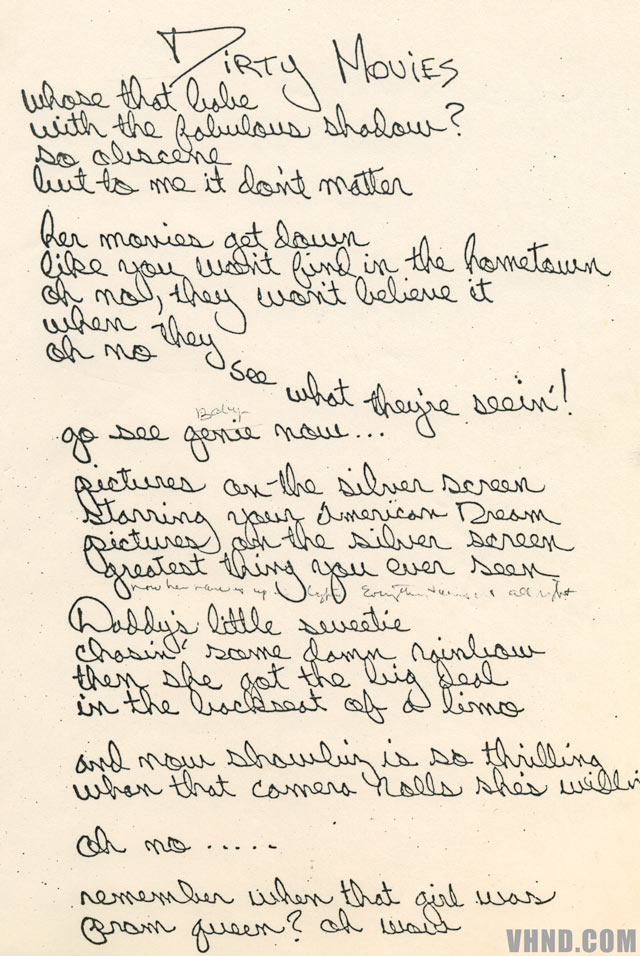 Dirty Movies
whose that babe
with the fabulous shadow?
so obscene
but to me it don't matter
her movies get down
like you won't find in the hometown
oh no, they won't believe it
when they
oh no
see what they're seein'!
Baby
go see genie now...
pictures on the silver screen
starring your American Dream
pictures on the silver screen
greatest thing you ever seen
now her name is up lights Everything all right
Daddy's little sweetie
chasin' some damn rainbow
then she got the big deal
in the backseat of a limo
and now showbiz is so thrilling
when that camera rolls she's willin
oh no .....
remember when that girl was
prom queen? oh wow
VHND.COM